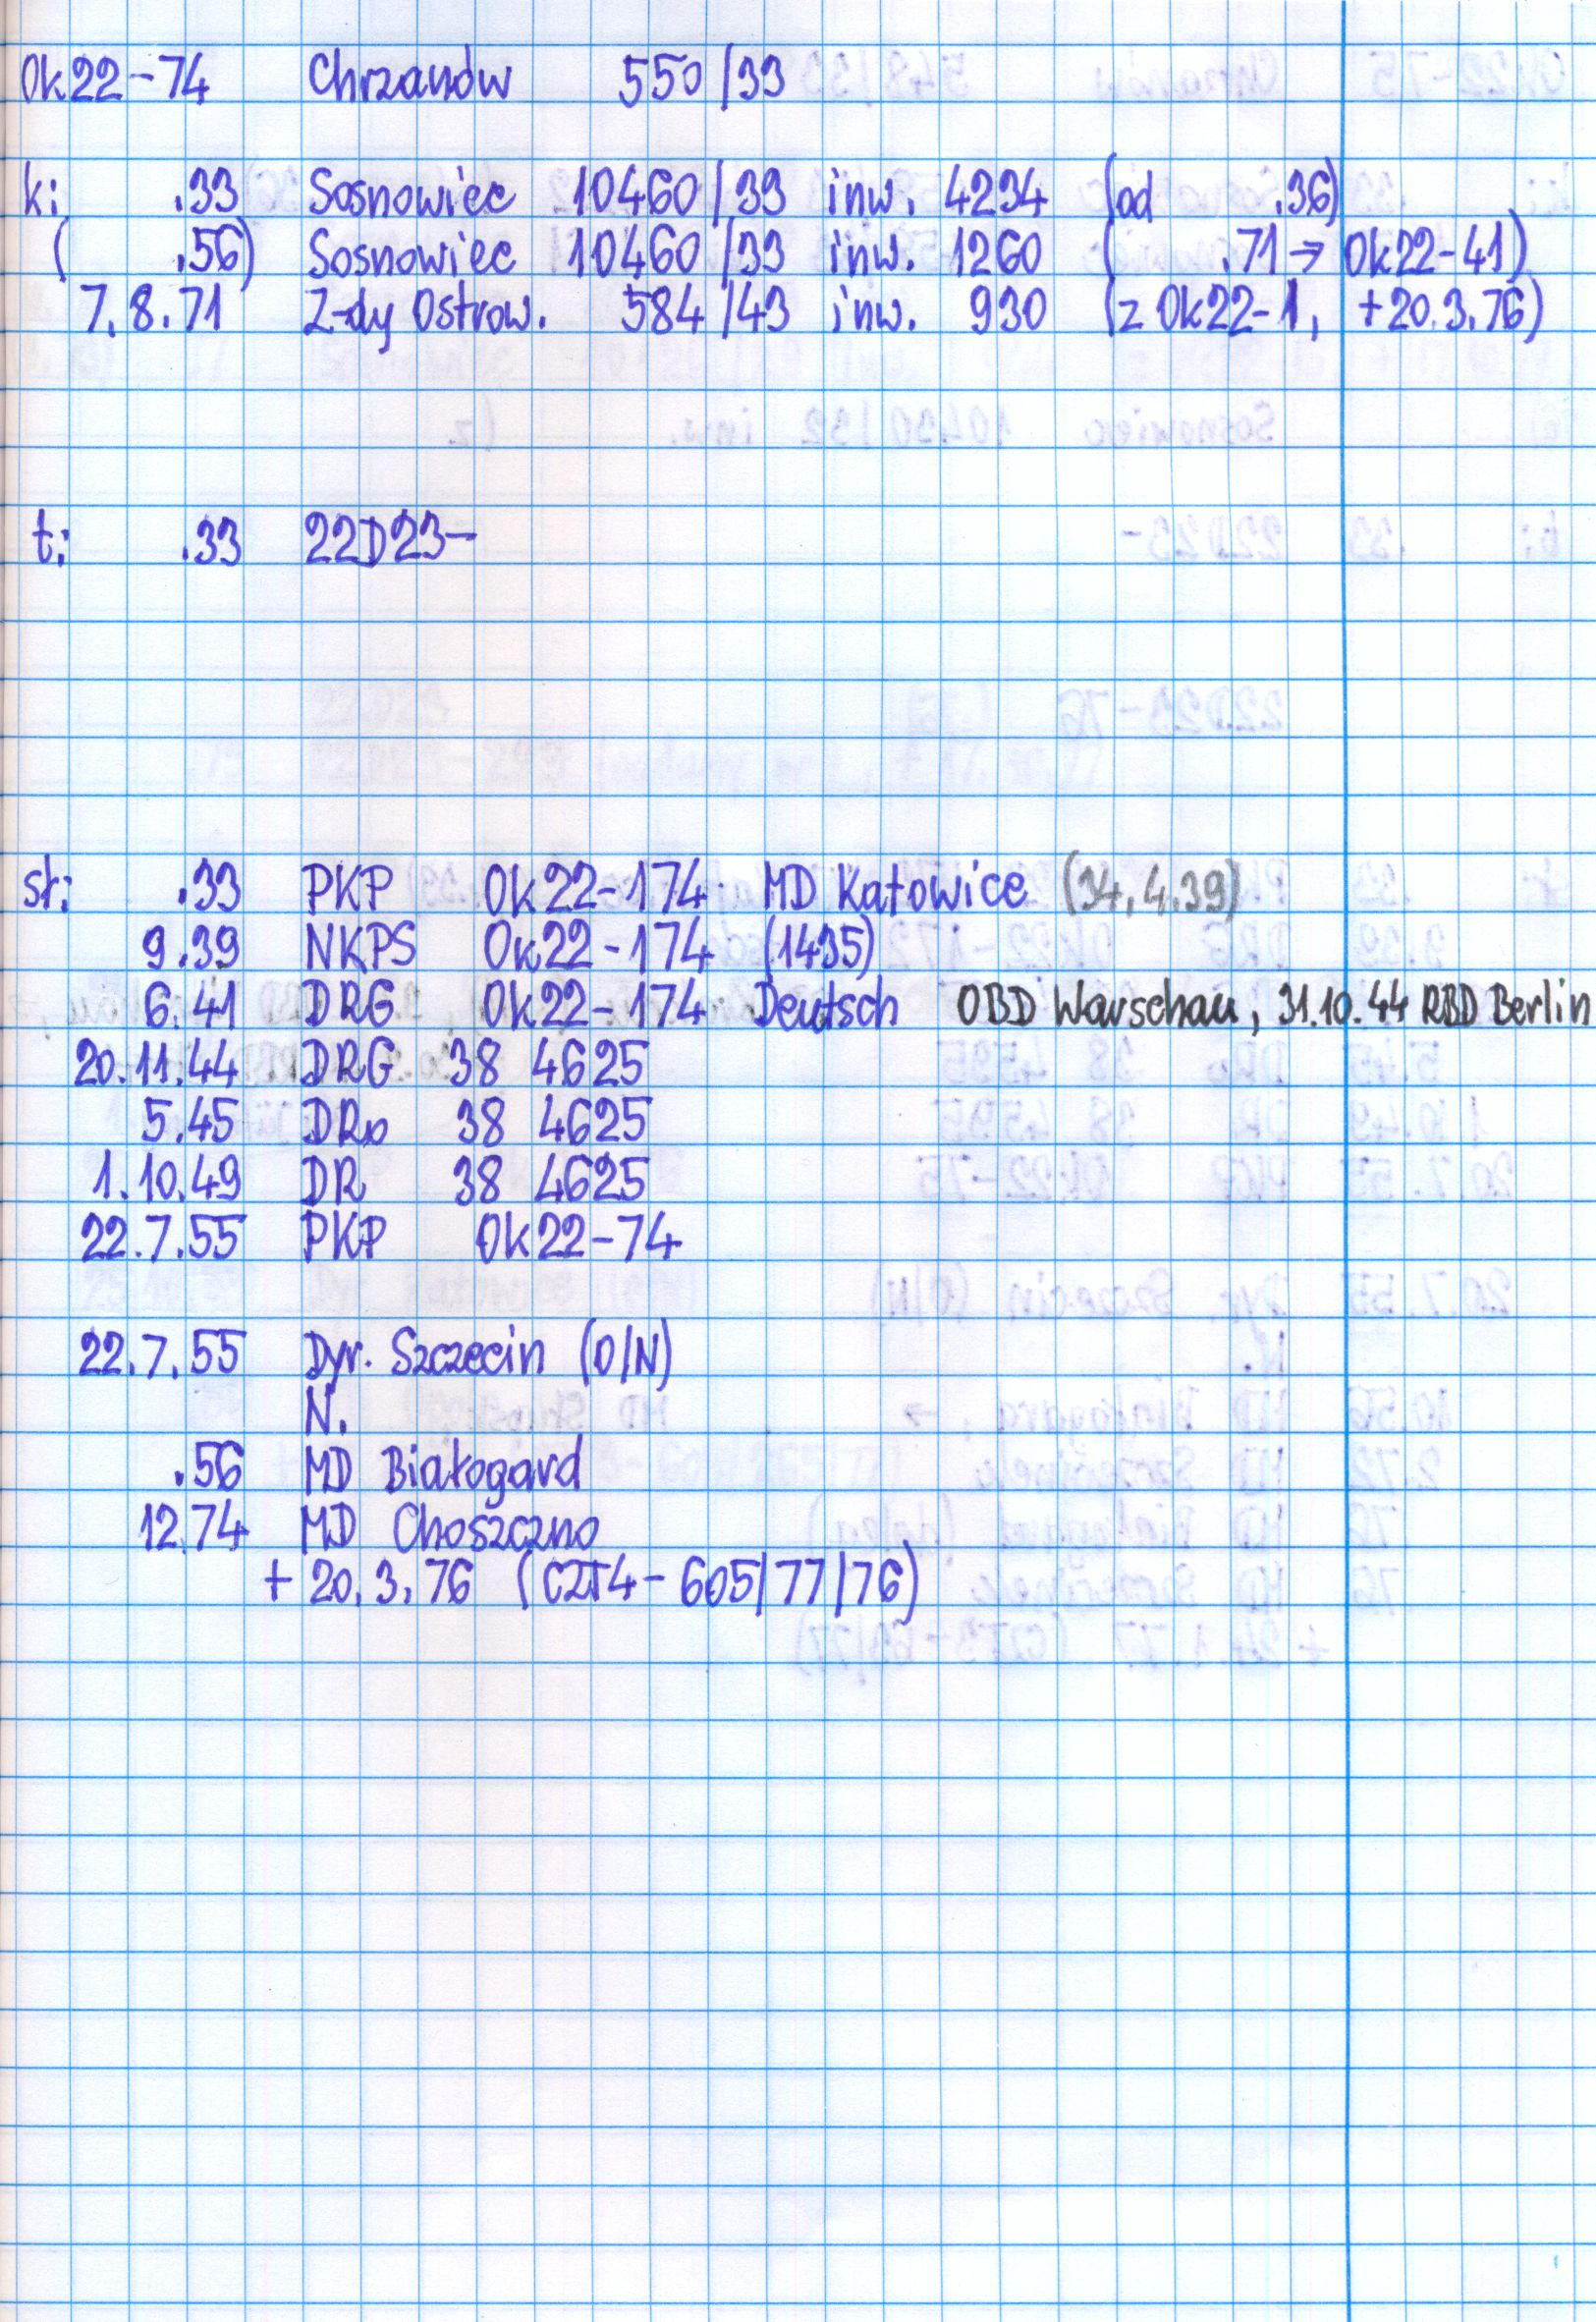 Ok22-74 Chrzanów 550/33
k: .33 Sosnowiec 10460/33 inw. 4234 (od .36)
( .56) Sosnowiec 10460/33 inw. 1260 ( .71→ Ok22-41)
7.8.71 Z-dy Ostrow. 584/43 inw. 930 (z Ok22-1, +20.3.76)
t: .33 22D23-
st: .33 PKP Ok22-174 MD Katowice (34, 4.39)
9.39 NKPS Ok22-174 (1435)
6.41 DRG Ok22-174 Deutsch OBD Warschau, 31.10.44 RBD Berlin
20.11.44 DRG 38 4625
5.45 DRo 38 4625
1.10.49 DR 38 4625
22.7.55 PKP Ok22-74
22.7.55 Dyr. Szczecin (O/N)
N.
.56 MD Białogard
12.74 MD Choszczno
+ 20.3.76 (CZT4-605/77/76)